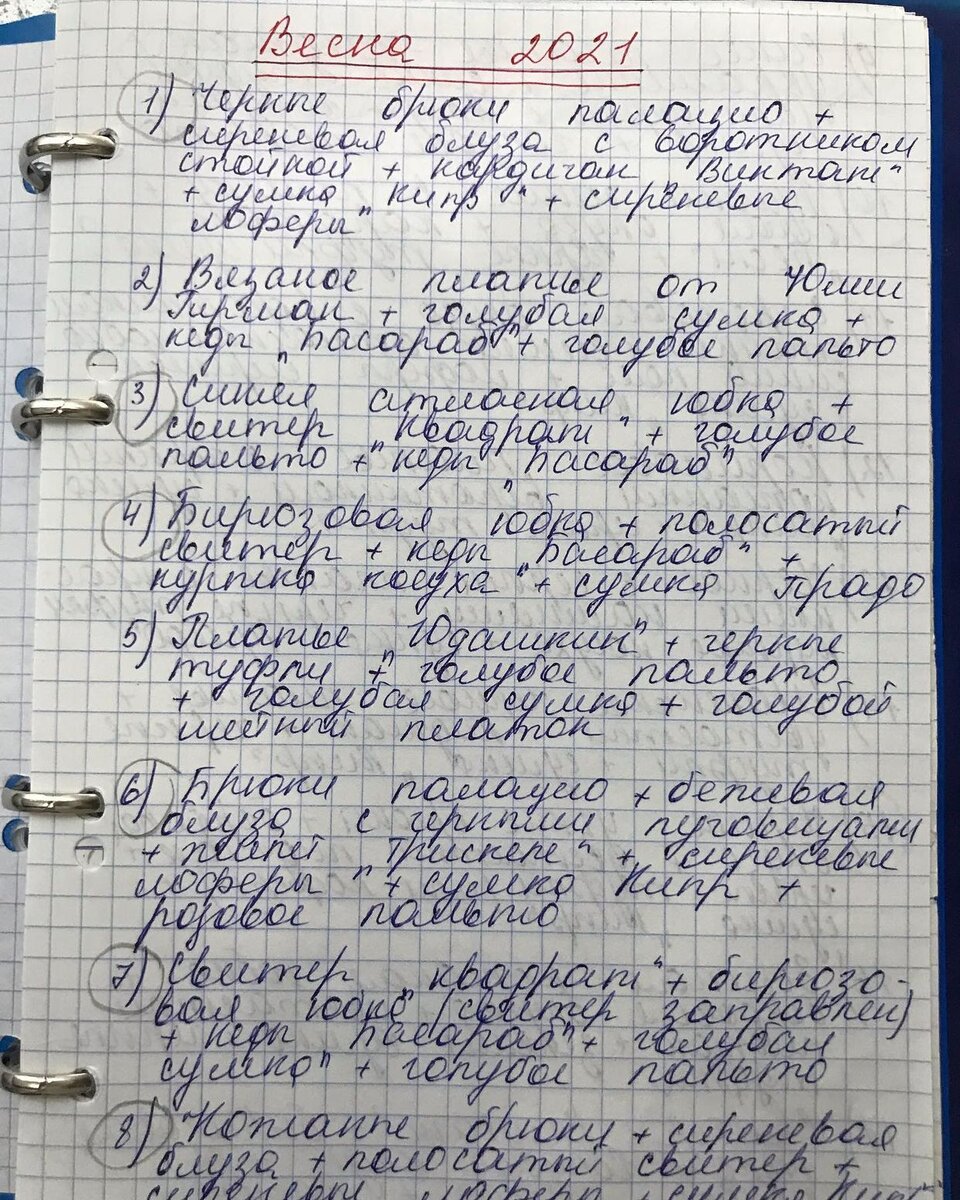 Весна 2021
1) Черные брюки палаццо +
сиреневая блуза с воротником
стойкой + кардиган „Винтаж"
+ сумка „Кипр" + сиреневые
лоферы
2) Вязаное платье от Юлии
Гирман + голубая сумка +
кеды „Басараб" + голубое пальто
3) Синяя атласная юбка +
свитер „квадрат" + голубое
пальто + кеды „Басараб"
4) Бирюзовая юбка + полосатый
свитер + кеды „Басараб" +
куртка косуха + сумка Прадо
5) Платье „Юдашкин" + черные
туфли + голубое пальто
+ голубая сумка + голубой
шейный платок
6) Брюки палаццо + бежевая
блуза с черными пуговицами
+ жилет „Трискеле" + сиреневые
лоферы + сумка „Кипр" +
розовое пальто
7) Свитер „квадрат" + бирюзо-
вая юбка (свитер заправлен)
+ кеды „Басараб" + голубая
сумка + голубое пальто
8) Кожаные брюки + сиреневая
блуза + полосатый свитер +
сиреневые лоферы + сумка